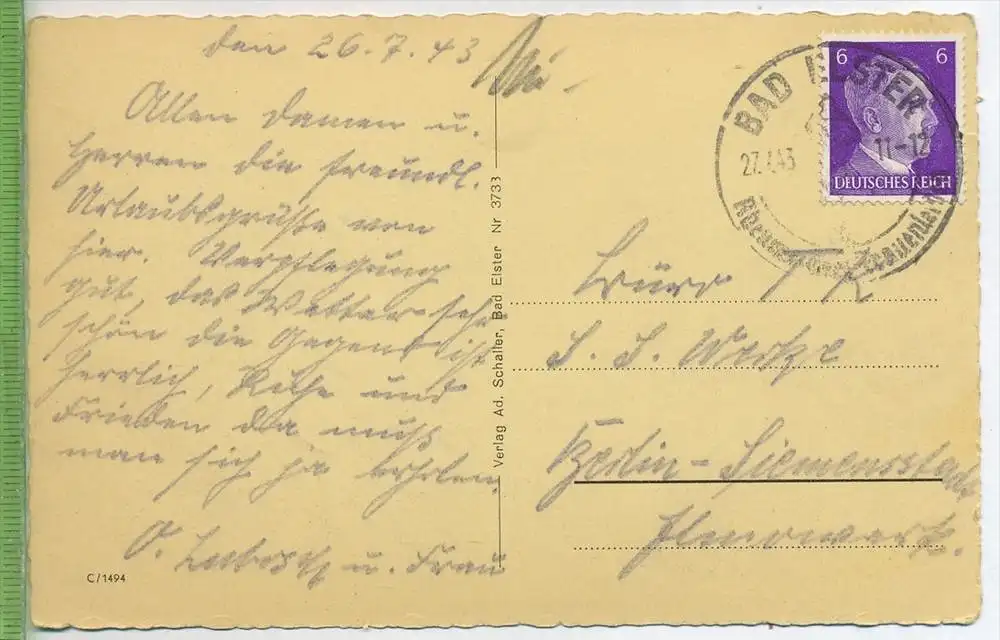 den 26.7.43
Allen Damen u.
Herren die freundl.
Urlaubsgrüße von
hier. Verpflegung
gut, das Wetter sehr
schön die Gegend ist
herrlich, Ruhe und
Frieden da muß
man sich ja erholen.
u. Frau
C/1494
Verlag Ad. Schaller, Bad Elster Nr 3733
BAD ELSTER
27.7.43
11-12
6 6
DEUTSCHES REICH
Büro
S. S. Werke
Berlin-Siemensstadt
Elmowerk.